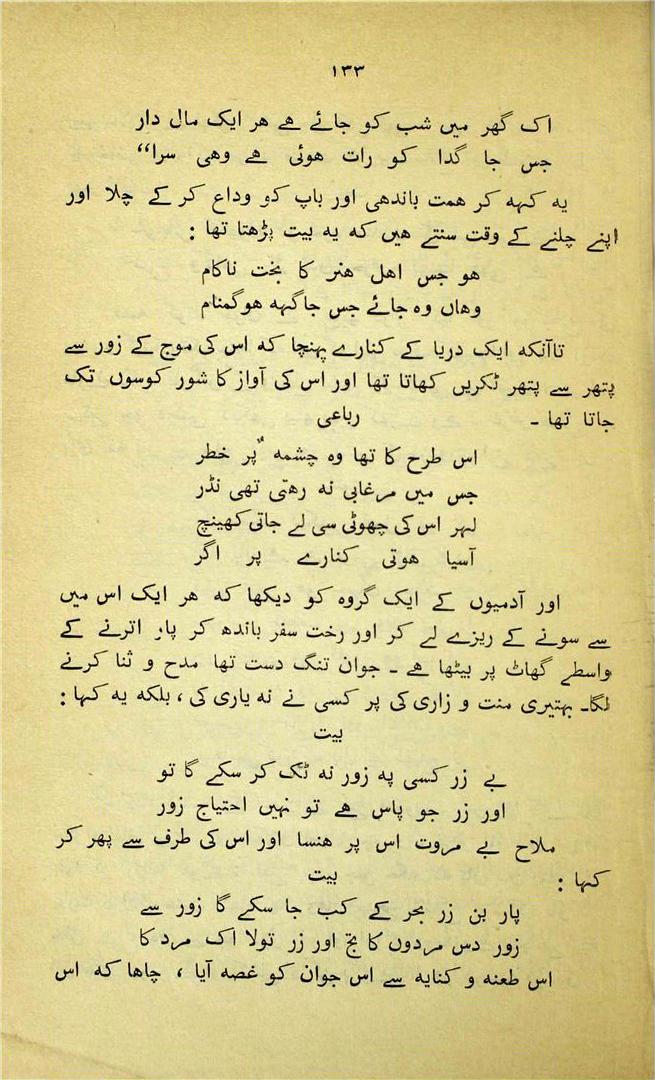 ١٣٣
اک گھر میں شب کو جائے ھے ھر ایک مال دار
جس جا گدا کو رات ھوئی ھے وھی سرا‘‘
یہ کہہ کر ھمت باندھی اور باپ کو وداع کر کے چلا اور
اپنے چلنے کے وقت سنتے ھیں کہ یہ بیت پڑھتا تھا :
ھو جس اھل ھنر کا بخت ناکام
وھاں وہ جائے جس جاگہہ ھو گمنام
تاآنکہ ایک دریا کے کنارے پہنچا کہ اس کی موج کے زور سے
پتھر سے پتھر ٹکریں کھاتا تھا اور اس کی آواز کا شور کوسوں تک
جاتا تھا ۔ رباعی
اس طرح کا تھا وہ چشمہ ٴ پر خطر
جس میں مرغابی نہ رھتی تھی نڈر
لہر اس کی چھوٹی سی لے جاتی کھینچ
آسیا ھوتی کنارے پر اگر
اور آدمیوں کے ایک گروہ کو دیکھا کہ ھر ایک اس میں
سے سونے کے ریزے لے کر اور رخت سفر باندھ کر پار اترنے کے
واسطے گھاٹ پر بیٹھا ھے ۔ جوان تنگ دست تھا مدح و ثنا کرنے
لگا۔ بہتیری منت و زاری کی پر کسی نے نہ یاری کی ، بلکہ یہ کہا :
بیت
بے زر کسی پہ زور نہ ٹک کر سکے گا تو
اور زر جو پاس ھے تو نہیں احتیاج زور
ملاح بے مروت اس پر ھنسا اور اس کی طرف سے پھر کر
کہا : بیت
پار بن زر بحر کے کب جا سکے گا زور سے
زور دس مردوں کا تج اور زر تولا اک مرد کا
اس طعنہ و کنایہ سے اس جوان کو غصہ آیا ، چاھا کہ اس